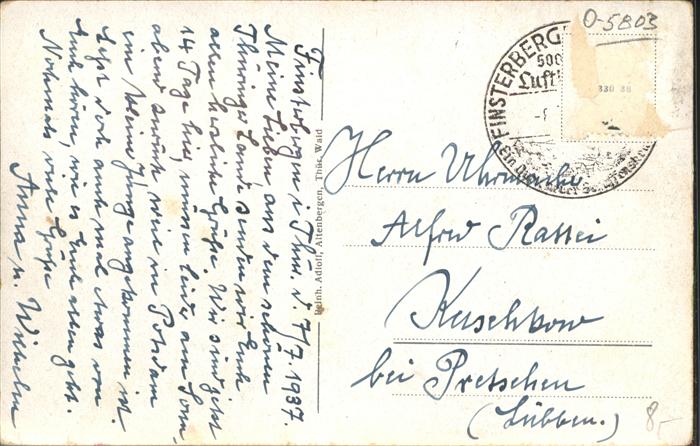 Finsterbergen i. Thür. d. 7/7. 1937.
Meine Lieben! aus dem schönen
Thüringer Lande senden wir Euch
allen herzliche Grüße. Wir sind jetzt
14 Tage hier, müssen leider am Sonn-
abend zurück, weil in Potsdam
ein kleiner Junge angekommen ist.
Laßt doch auch mal etwas von
Euch hören, wie es Euch allen geht.
Nochmals viele Grüße
Anna u. Wilhelm
Reinh. Adloff, Altenbergen, Thür. Wald
O-5803
FINSTERBERGEN
500
Luft
330 38
Herrn Uhrmacher
Alfred Rattei
Kuschkow
bei Pretschen
(Lübben.)
8,-